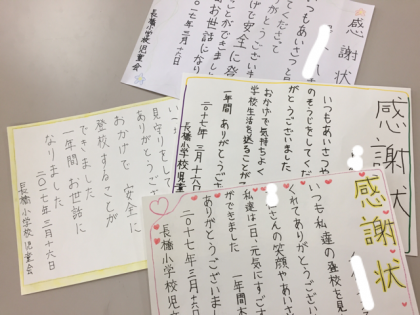 感謝状
いつもあいさつと見
てくださって
がとうございま
げで安全に登
ことができまし
お世話になり
二〇一七年三月十六日
長橋小学校児童会
感謝
いつもあいさつや
のそうじをしてくだ
がとうございました
おかげで気持ちよく
学校生活を送ることが
一年間 ありがとうござ
二〇十七年 三月十六日
長橋小学校児童
見守りをして
ありがとうござ
おかげで 安全に
登校することが
できました
一年間 お世話に
なりました
二〇一七年 三月十六日
長橋小学校児童会
感謝状
いつも私達の登校を見
くれてありがとうござい
さんの笑顔やあいさ
私達は一日、元気にすごす
ができました 一年間本
ありがとうございました
二〇十七年 三月十六日
長橋小学校児